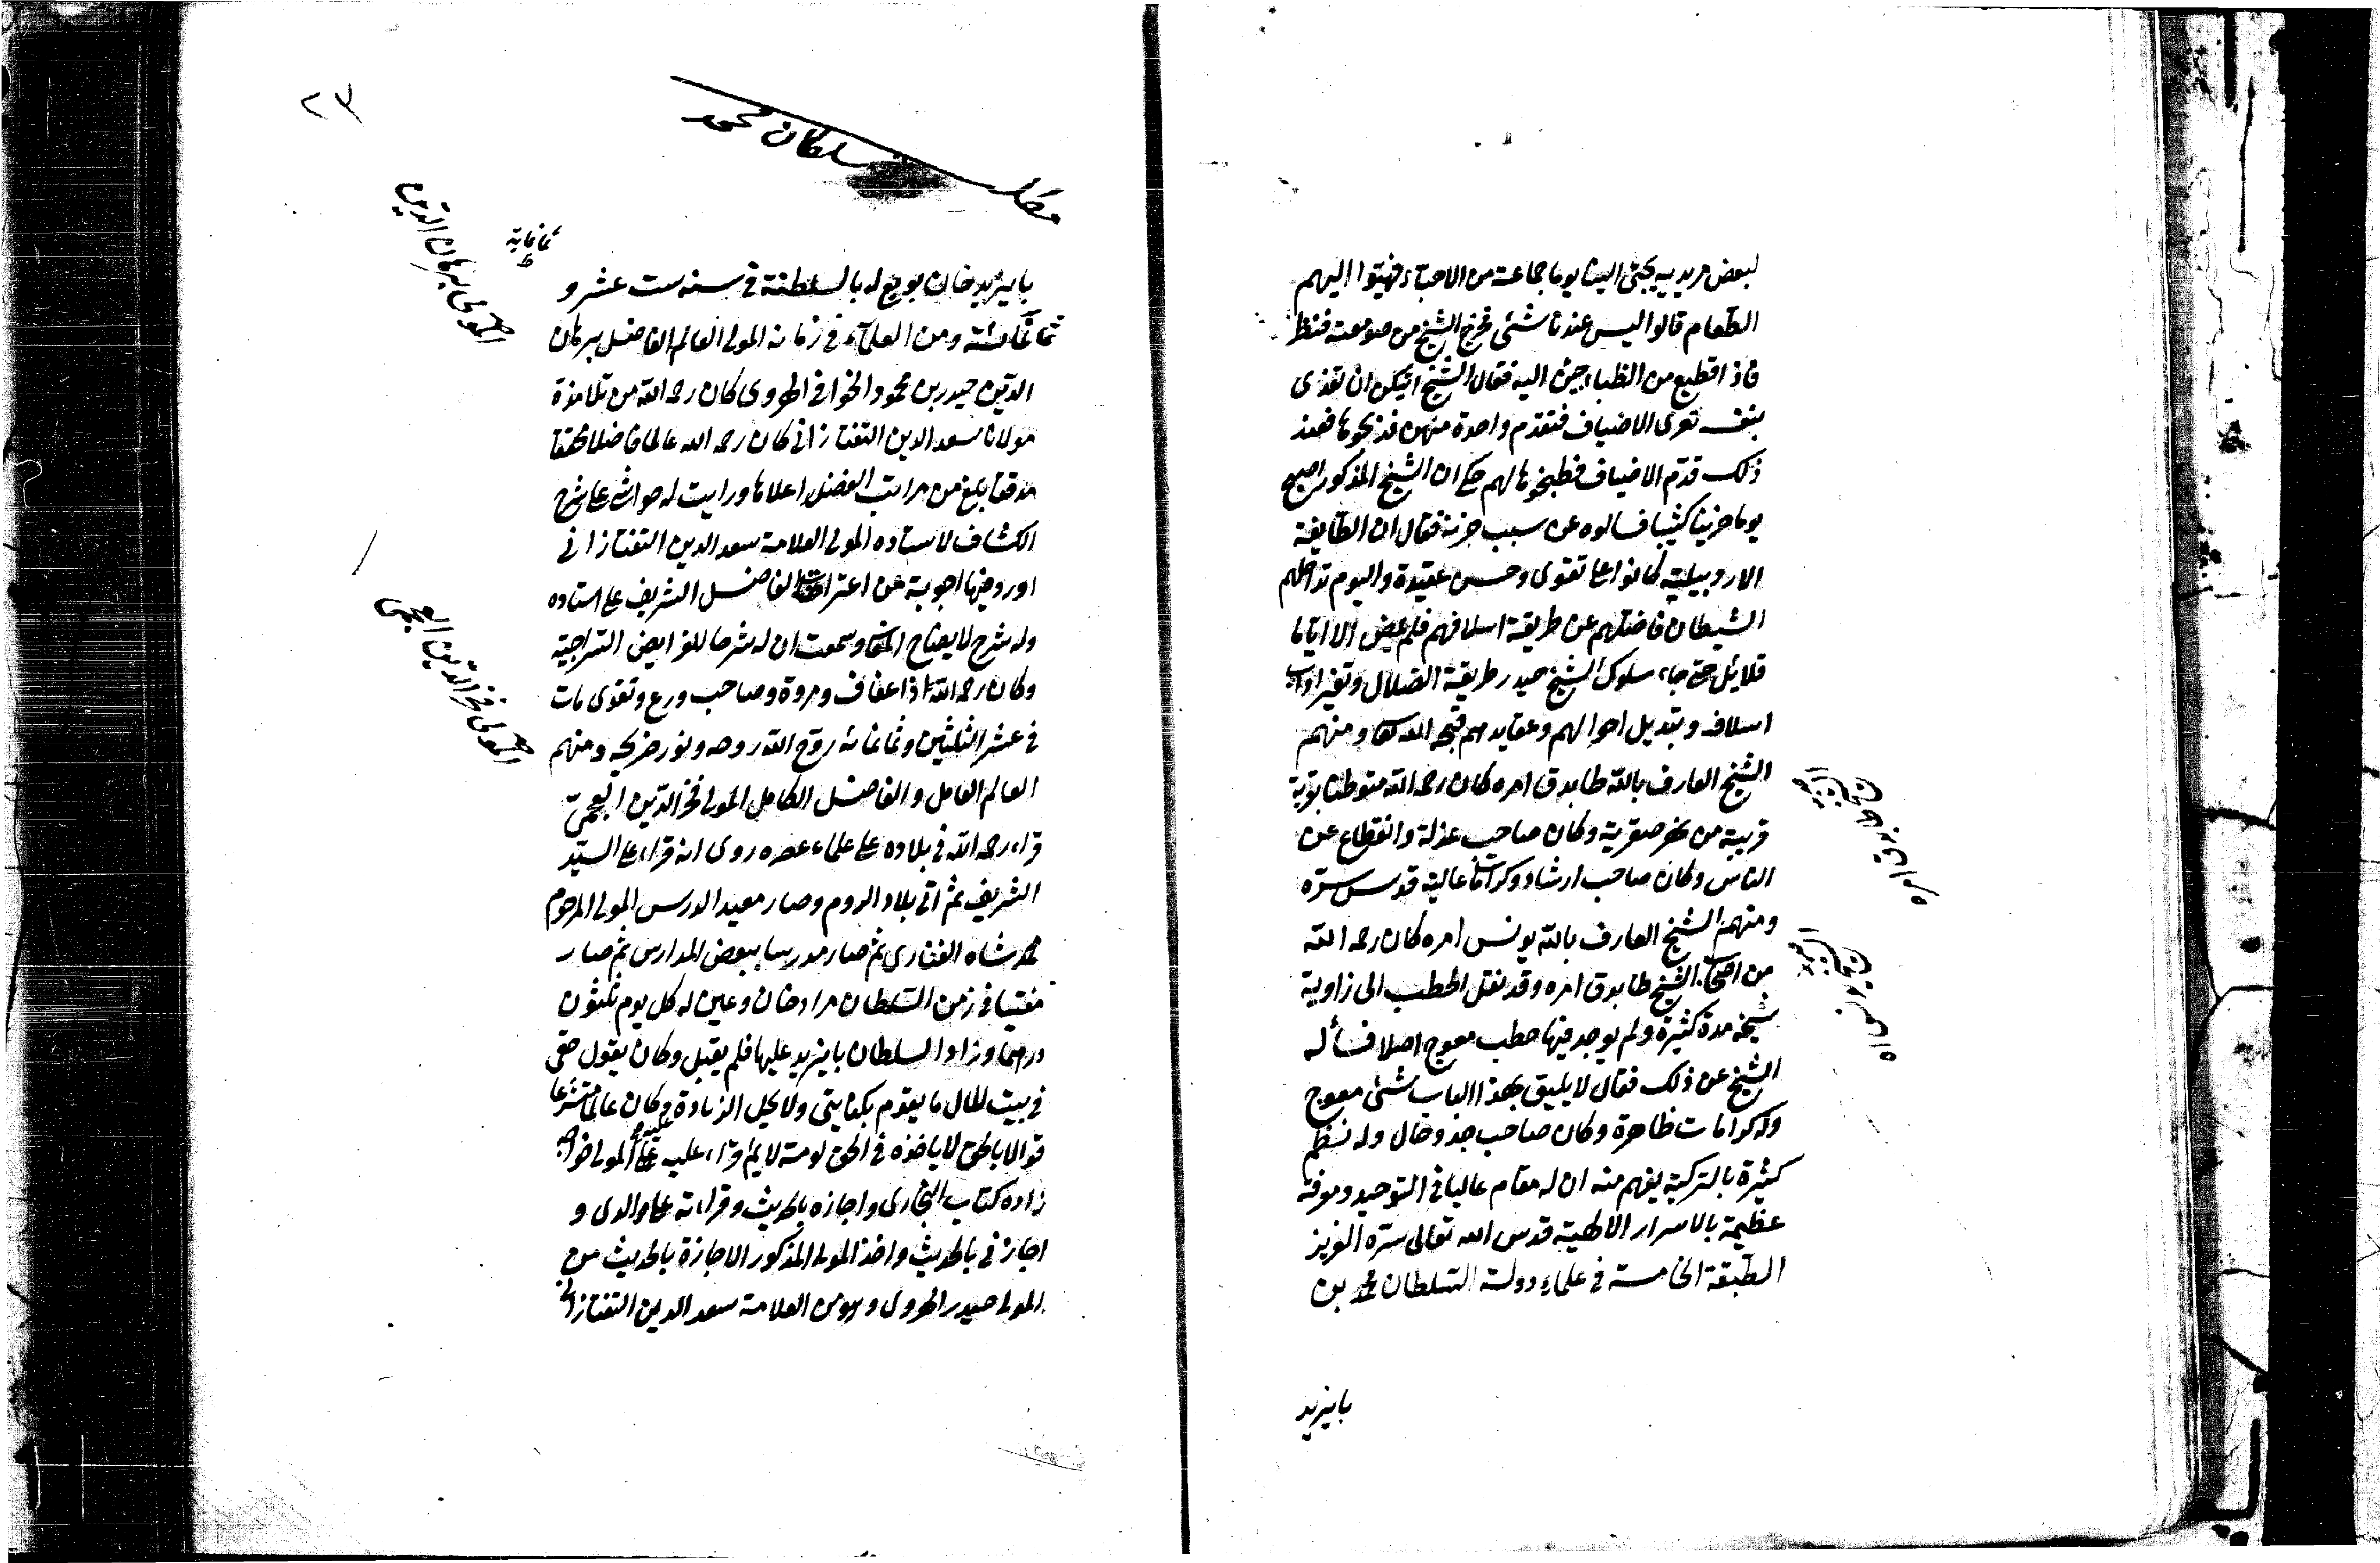 لبعض مريديه يجئ الينا يوما جماعة من الاحباء فهيئوا اليهم
الطعام قالوا ليس عندنا شئ فخرج الشيخ من صومعته فنظر
فاذا قطيع من الظباء جئن اليه فقال الشيخ ايتكن ان تفدى
بنفسه لقرى الاضياف فتقدم واحدة منهن فذبحوها فعند
ذلك قدم الاضياف فطبخوها لهم حكى ان الشيخ المذكور اصبح
يوما حزينا كئيبا فسالوه عن سبب حزنه فقال ان الطايفة
الاردبيلية كانوا على تقوى وحسن عقيدة واليوم تداخلهم
الشيطان فاضلهم عن طريقة اسلافهم فلم يمض الا اياما
قلائل حتى جاء سلوك الشيخ حيدر طريقة الضلال وتغير اداب
اسلافه وتبديل احوالهم وعقايدهم قبحه الله تعالى ومنهم
الشيخ العارف بالله طابدق امره كان رحمه الله متوطنا بقرية
قريبة من نهر صقرية وكان صاحب عزلة وانقطاع عن
الناس وكان صاحب ارشاد وكرامات عالية قدوس سره
ومنهم الشيخ العارف بالله يونس امره كان رحمه الله
من اصحاب الشيخ طابدق امره وقد نقل الحطب الى زاوية
شيخه مدة كثيرة ولم يوجد فيها حطب معوج اصلا فسأله
الشيخ عن ذلك فقال لا يليق بهذا الباب شئ معوج
وله كرامات ظاهرة وكان صاحب جذ وحال وله نظم
كثيرة بالتركية يفهم منه ان له مقام عاليا في التوحيد ومعرفة
عظيمة بالاسرار الالهية قدس الله تعالى سره العزيز
الطبقة الخامسة في علماء دولة السلطان محمد بن
بايزيد
٢٣
مطلب سلطان محمد
ثمانماية
المولى برهان الدين
بايزيد خان بويع له بالسلطنة في سنه ست عشر و
ثمانمائة ومن العلماء في زمانه المولى العالم الفاضل برهان
الدين حيدر بن محمود الخوافي الهروى كان رحمه الله من تلامذة
مولانا سعد الدين التفتازاني كان رحمه الله عالما فاضلا محققا
مدققا بلغ من مراتب الفضل اعلاها ورايت له حواشى على شرح
الكشاف لاستاده المولى العلامة سعد الدين التفتازاني
اورد فيها اجوبة عن اعتراضات الفاضل الشريف على استاده
وله شرح لايضاح المعانى وسمعت ان له شرحا للفرايض السراجية
وكان رحمه الله ذا عفاف ومروة وصاحب ورع وتقوى مات
في عشر الثلثين وثمانمائه روح الله روحه ونور ضريحه ومنهم
المولى فخر الدين العجمى
العالم العامل والفاضل الكامل المولى فخر الدين العجمى
قراء رحمه الله في بلاده على علماء عصره روى انه قراء على السيد
الشريف ثم اتى بلاد الروم وصار معيد الدرس المولى المرحوم
محمد شاه الفنارى ثم صار مدرسا ببعض المدارس ثم صار
مفتيا في زمن السلطان مراد خان وعين له كل يوم ثلثون
درهما وزاد السلطان بايزيد عليها فلم يقبل وكان يقول حقى
في بيت المال ما يقوم بكفايتى ولا يحل الزيادة عليه وكان عالما متشرعا
قوالا بالحق لا ياخذه في الحق لومة لايم قراء عليه على المولى خواجه
زاده كتاب البخارى واجازه بالحديث وقراءته على والدى و
اجازنى بالحديث واخذ المولى المذكور الاجازة بالحديث من
المولى حيدر الهروى وهو من العلامة سعد الدين التفتازاني